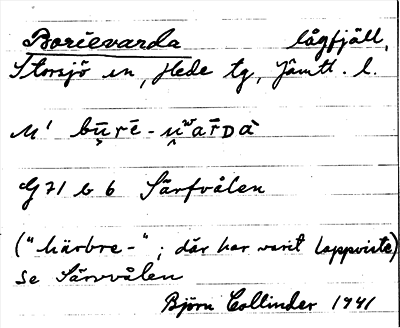 Borievarda lågfjäll,
Storsjö sn, Hede tg, Jämtl. l.
M' bu̮rē-u̯ʷar̄Dà
G 71 b 6 Särfvålen
("härbre-"; där har varit lappviste)
Se Särvvålen
Björn Collinder 1941